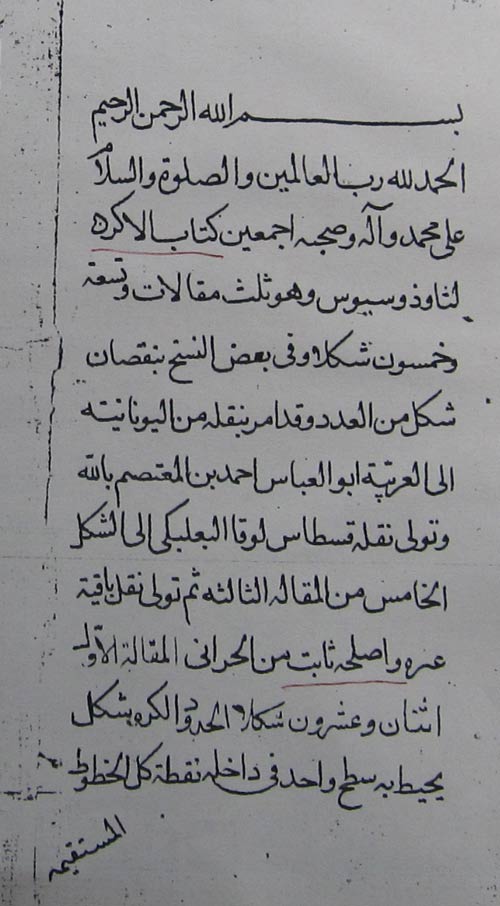 بسم الله الرحمن الرحيم
الحمد لله رب العالمين والصلوة والسلام
على محمد وآله وصحبه اجمعين كتاب الاكره
لثاوذوسيوس وهو ثلث مقالات وتسعة
وخمسون شكلا وفى بعض النسخ بنقصان
شكل من العدد وقد امر بنقله من اليونانيته
الى العربية ابو العباس احمد بن المعتصم بالله
وتولى نقله قسطاس لوقا البعلبكى الى الشكل
الخامس من المقاله الثالثه ثم تولى نقل باقية
عىره واصلحه ثابت من الحرانى المقالة الاولى
اثنتان وعشرون شكلا الحدود الكره شكل
يحيط به سطح واحد فى داخله نقطة كل الخطوط
المستقيمه